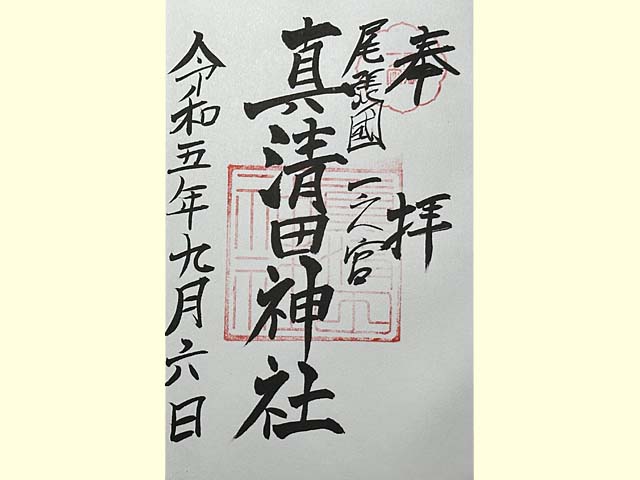 奉拝
尾張國一之宮
真清田神社
令和五年九月六日